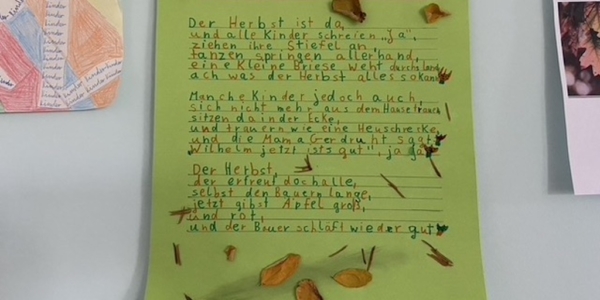 Der Herbst ist da,
und alle Kinder schreien "Ja",
ziehen ihre Stiefel an,
tanzen springen allerhand,
eine kleine Briese weht durchs land
ach was der Herbst alles so kann
Manche Kinder jedoch auch,
sich nicht mehr aus dem Hause trauen
sitzen da in der Ecke,
und trauern wie eine Heuschrecke,
und die Mama Gerdruht sagt
"Wilhelm jetzt ists gut", ja ja
Der Herbst,
der erfreut doch alle,
selbst den Bauern lange,
jetzt gibst Äpfel groß,
und rot,
und der Bauer schläft wieder gut
Linder
Linder
Linder
Linder
Linder
Linder
Linder